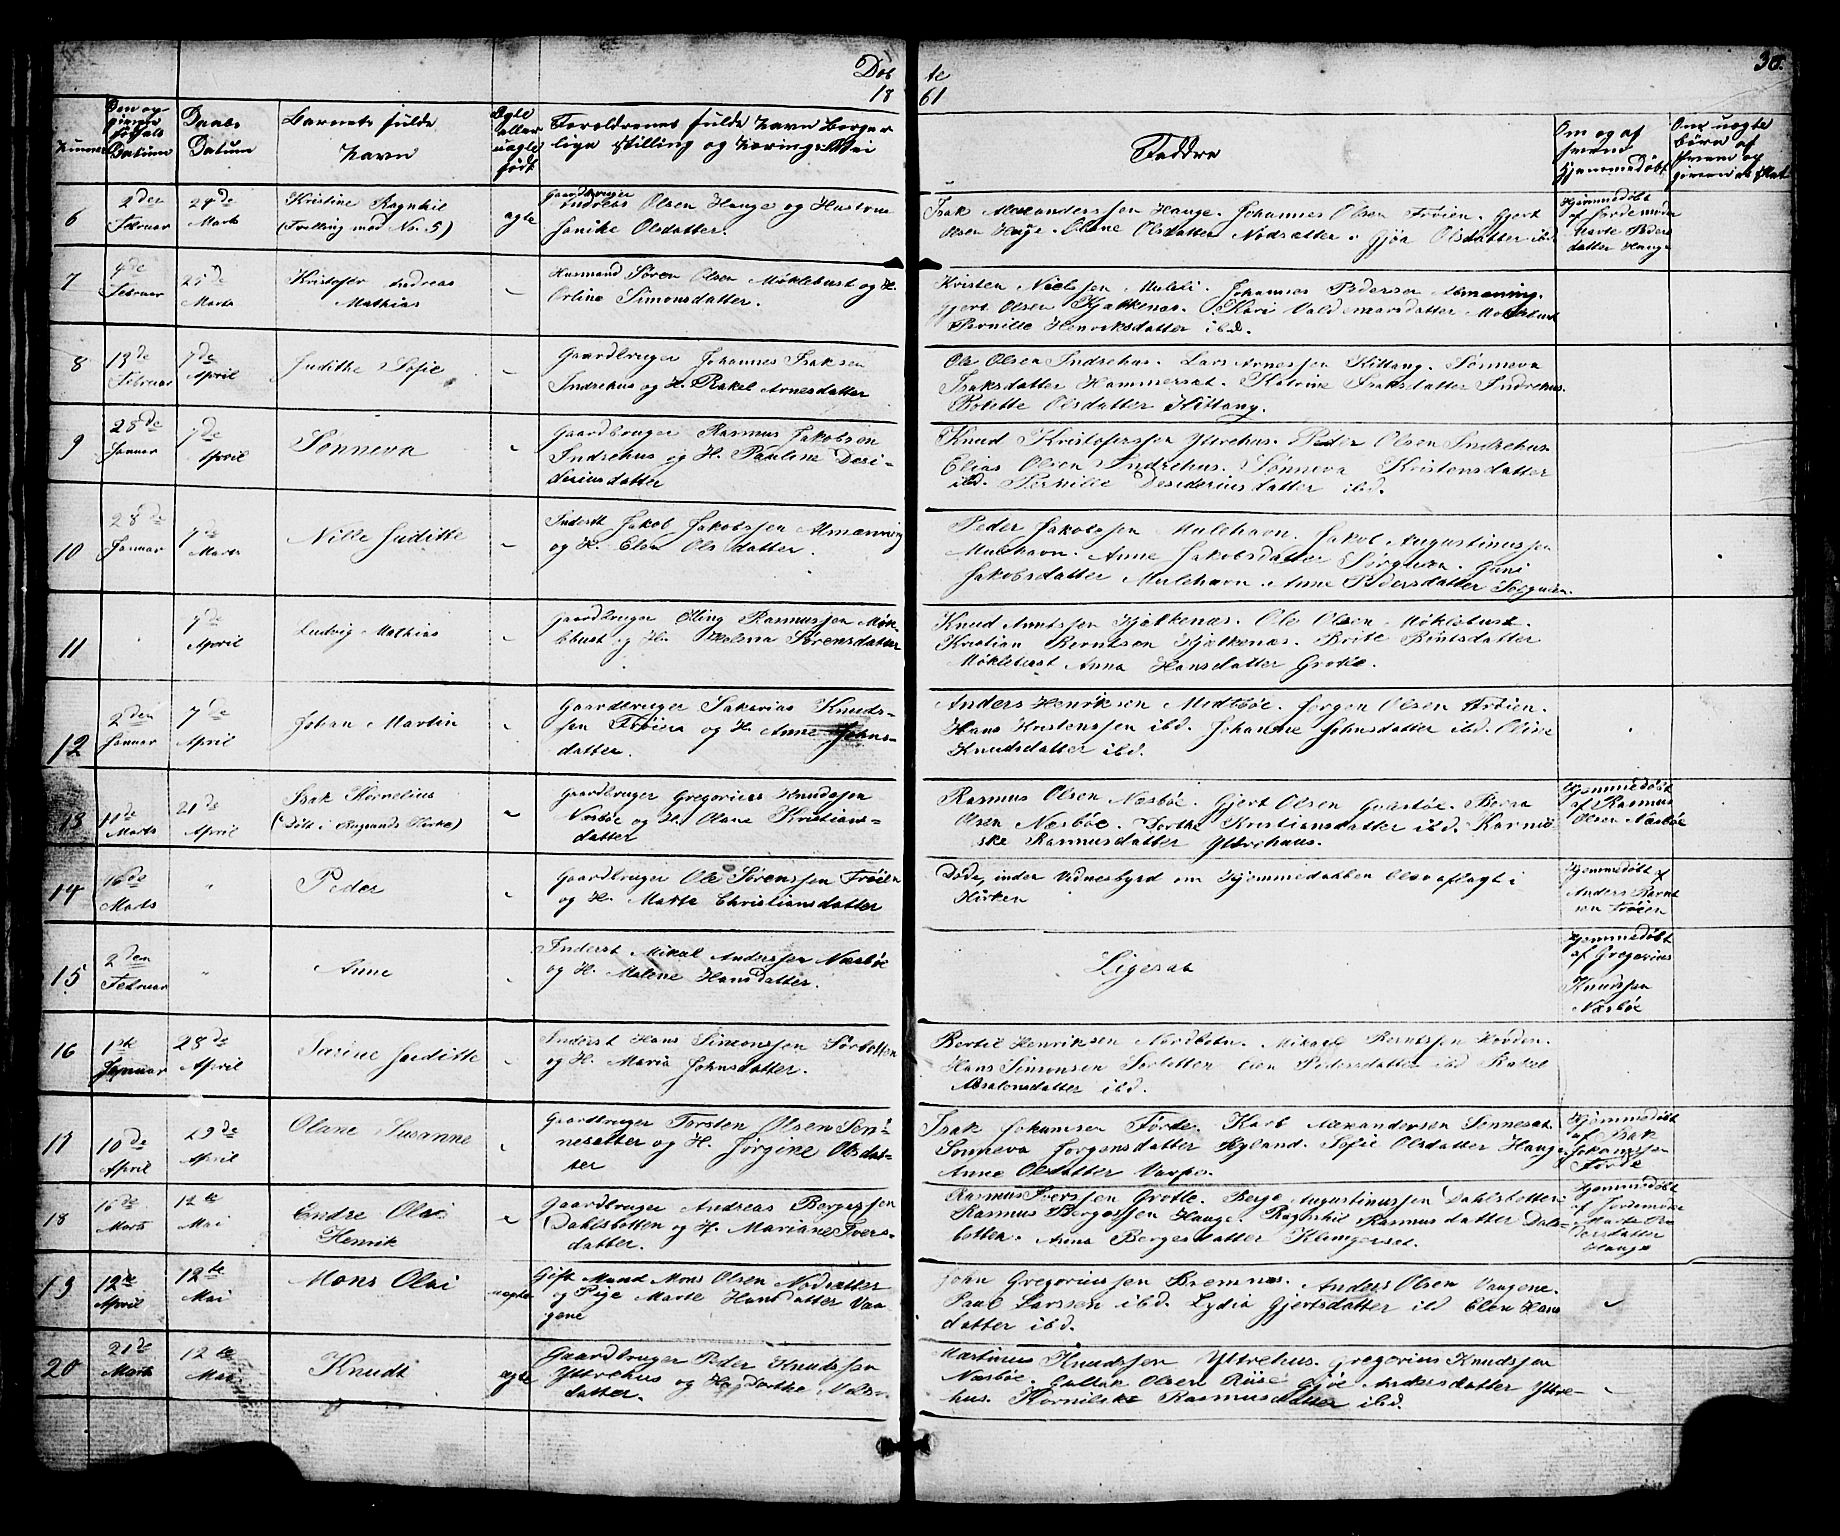 Døb
te
30.
18
61
Nummer
Den op-
givne
Fødsels
Datum
Daabs
Datum
Barnets fulde
Navn
Ægte
eller
uægte
født
Foreldrenes fulde Navn Borger
lige Stilling og Nærings Vei
Faddre
Om og af
hvem
hjemmedøbt
Om uægte
børn af
hvem og
6
2den
Februar
24de
Marts
Kristine Ragnhil
(Tvilling med No. 5)
ægte
Gaardbruger
Andreas Olsen Hauge og Hustrue
Janike Olsdatter.
Isak Alexanderssen Hauge. Johannes Olsen Frøien. Gjert
Olsen Hauge. Oline Olsdatter Nødsætter. Gjøa Olsdatter ibd
Hjemmedøbt
af Jordemoder
Marte Peders
datter Hauge
7
4de
Februar
25de
Marts
Kristofer Andreas
Mathias
"
Husmand Søren Olsen Møklebust og H.
Orline Simonsdatter.
Kristen Nielssen Mulebø. Johannes Pedersen Almenning.
Gjert Olsen Kjælkenæs. Kari Valdemarsdatter Møklebust
Pernille Henriksdatter ibd.
8
13de
Februar
7de
April
Judithe Sofie
"
Gaardbruger Johannes Isaksen
Indrehus og H. Rakel Arnesdatter
Ole Olsen Indrehus. Lars Arnessen Hittang. Sønneva
Isaksdatter Hammerset. Katrine Isaksdatter Indrehus.
Bolette Olsdatter Hittang.
9
28de
Januar
7de
April
Sønneva
"
Gaardbruger Rasmus Jakobsen
Indrehus og H. Pauline Desi-
deriusdatter
Knud Kristoferssen Yttrehus. Peder Olsen Indrehus.
Elias Olsen Indrehus. Sønneva Kristensdatter
ibd. Pernille Desideriusdatter ibd.
10
28de
Januar
7de
Marts
Nille Juditte
"
Inderst Jakob Jakobssen Almenning
og H. Elen Olsdatter.
Peder Jakobssen Mulehavn. Jakob Augustinussen
Mulehavn. Anne Jakobsdatter Sørgulen. Guni
Jakobsdatter Mulehavn. Anne Pedersdatter Sørgulen.
11
7de
April
Ludvig Mathias
"
Gaardbruger Elling Rasmussen Møk-
lebust og H. Malena Sørensdatter
Knud Antssen Kjælkenæs. Ole Olsen Møklebust.
Kristian Berntsen Kjælkenæs. Brite Bentsdatter
Møklebust Anna Hansdatter Grotle.
12
2den
Januar
7de
April
Johan Martin
"
Gaardbruger Sakarias Knuds-
sen Frøien og H. Anne Johns-
datter.
Anders Henriksen Midtbøe. Jørgen Olsen Frøien.
Hans Kristenssen ibd. Johanne Johnsdatter ibd. Oline
Knudsdatter ibd.
13
11de
Marts
21de
April
Isak Kornelius
(Døbt i Bugrands Kirke)
"
Gaardbruger Gregorius Knudssen
Næsbøe og H. Olane Kristians-
datter
Rasmus Olsen Næsbøe. Gjert Olsen Gulestøe. Berra
Olsen Næsbøe. Dorthe Kristiansdatter ibd. Karniel-
ske Rasmusdatter Yttrehuus.
Hjemmedøbt
af Rasmus
Olsen Næsbøe
14
16de
Marts
"
Peder
Gaardbruger Ole Sørenssen Frøien
og H. Marte Christiansdatter
Døde, inden Vidnesbyrd om Hjemmedaaben blev aflagt i
Kirken
Hjemmedøbt af
Anders Bernt
sen Frøien
15
2den
Februar
"
Anne
"
Inderst Mikal Anderssen Næsbøe
og H. Malene Hansdatter.
Ligesaa
Hjemmedøbt
af Gregorius
Knudssen
Næsbøe
16
1ste
Januar
28de
April
Sarine Juditte
"
Inderst Hans Simonssen Sørbotten
og H. Maria Johnsdatter.
Bertil Henriksen Nordbotn. Mikael Berntssen Hovden.
Hans Simonsen Sørbotten Elen Pedersdatter ibd Rakel
Absalonsdatter ibd.
17
10de
April
29de
April
Olane Susanne
"
Gaardbruger Torsten Olsen Søn-
nesetter og H. Jørgine Olsdat-
ter
Isak Johansen Førde. Karl Alexandersen Sønneset.
Sønneva Jørgensdatter Hyland. Sofie Olsdatter Hauge.
Anne Olsdatter Varpe.
Hjemmedøbt
af Isak
Johanssen
Førde
18
16de
Marts
12te
Mai
Endre Olai
Henrik
"
Gaardbruger Andreas Bergessen
Dahlsbotten og H. Mariane Ivers-
datter.
Rasmus Iverssen Grotle. Berge Augustinussen Dahlsbotten.
Rasmus Bergessen Hauge. Ragnhil Rasmusdatter Dals-
botten. Anna Bergesdatter Klungerset.
Hjemmedøbt
af Jordemoder
Marte Pe-
dersdatter
Hauge
19
12te
April
12te
Mai
Mons Olai
uægte
Gift Mand Mons Olsen Nødsætter
og Pige Marte Hansdatter Vaa-
gene
John Gregoriussen Bremnes. Anders Olsen Vaagene.
Paul Larssen ibd. Lydia Gjertsdatter ibd Elen Hans
datter ibd.
20
21de
Marts
12te
Mai
Knudt
ægte
Gaardbruger Peder Knudssen
Yttrehus og H. Dorthe Nils-
datter.
Martinus Knudssen Yttrehus. Gregorius Knudssen
Næsbøe. Gultak Olsen Riise. Gjøe Andersdatter Yttre-
hus. Kornilske Rasmusdatter ibd.